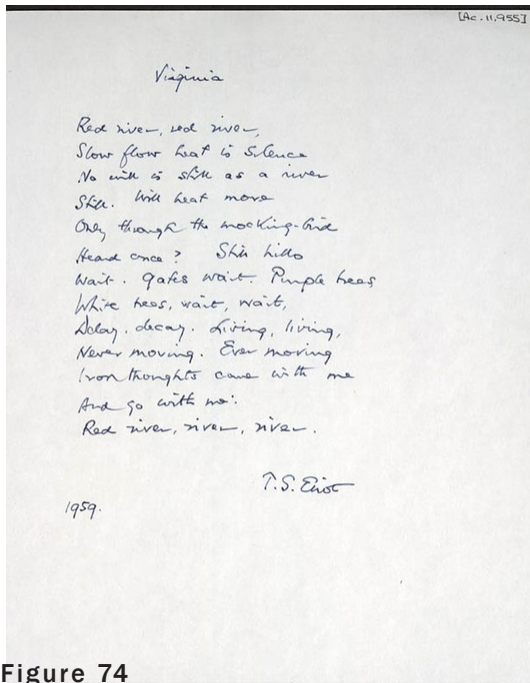 [Ac.11,955]
Virginia
Red river, red river,
Slow flow heat is silence
No will is still as a river
Still. Will heat move
Only through the mocking-bird
Heard once? Still hills
Wait. Gates wait. Purple trees
White trees, wait, wait,
Delay, decay. Living, living,
Never moving. Ever moving
Iron thoughts came with me
And go with me:
Red river, river, river.
T.S. Eliot
1959.
Figure 74